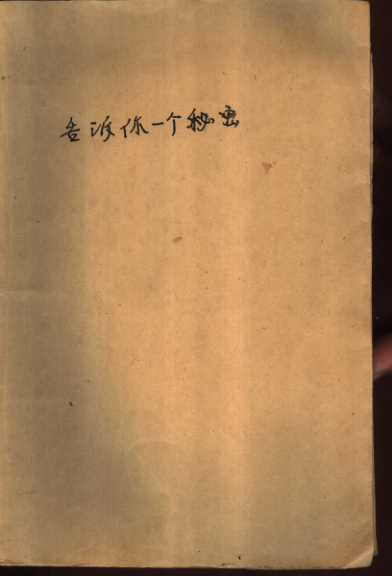 告诉你一个秘密